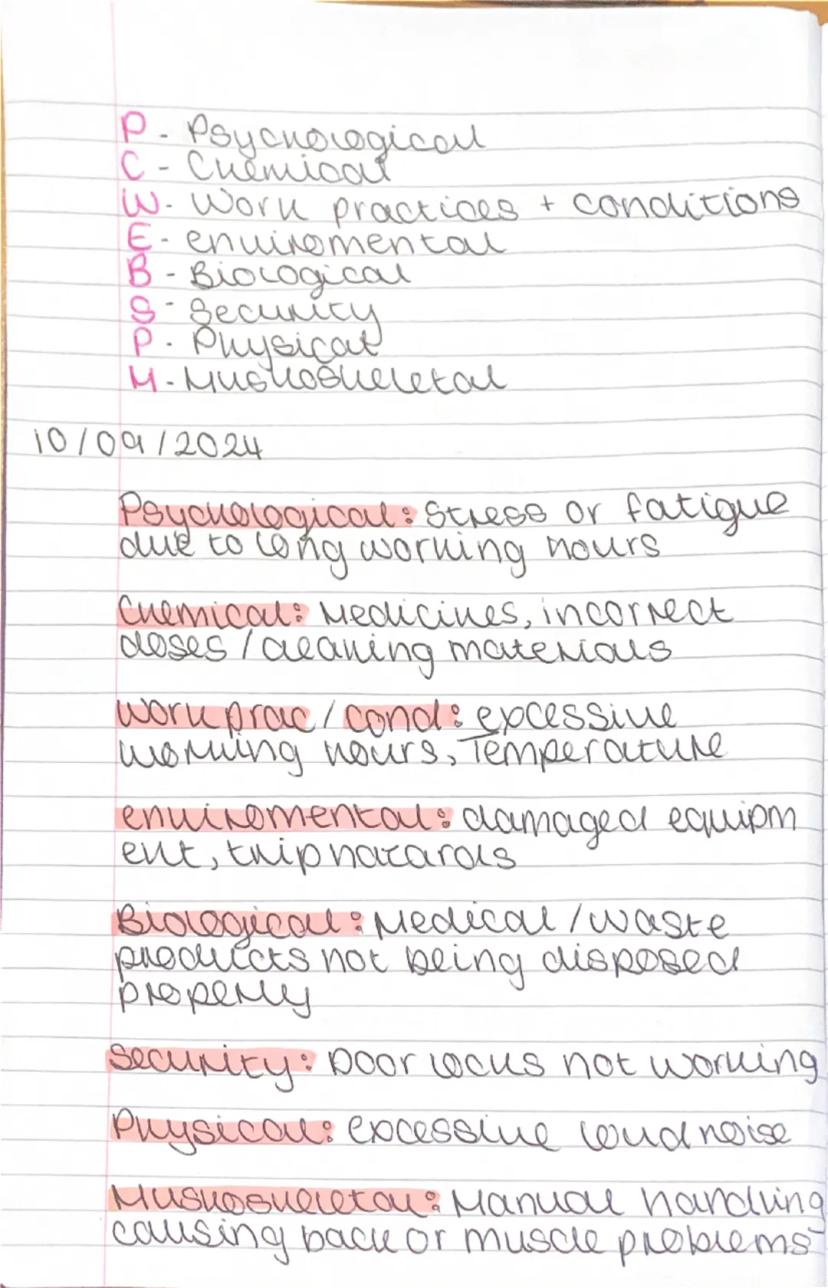 P - Psychological
C - Chemical
W - Work practices + conditions
E - enviromental
B - Biological
S - Security
P - Physical
M - Muskoskeletal
10/09/2024
Psychological: Stress or fatigue
due to long working hours
Chemical: Medicines, incorrect
doses / cleaning materials
Work prac / cond: excessive
working hours, Temperature
enviromental: damaged equipm
ent, trip hazards
Biological: Medical / waste
products not being disposed
properly
Security: Door locks not working
Physical: excessive loud noise
Muskoskeletal: Manual handling
causing back or muscle problems